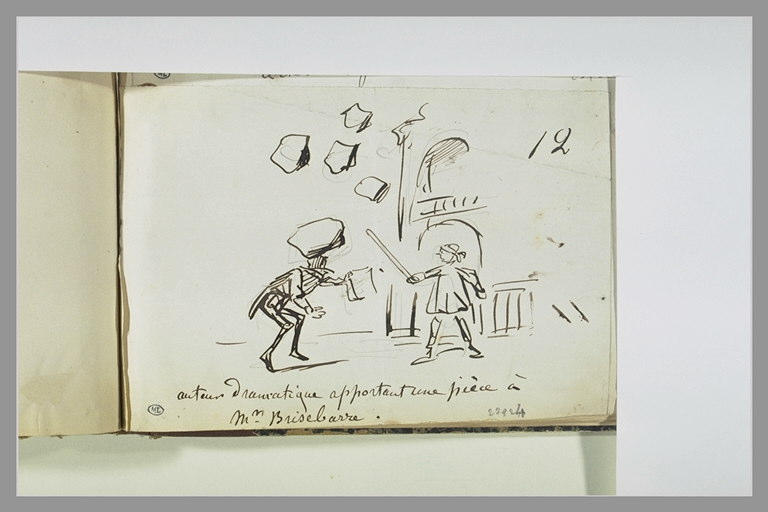 12
auteur dramatique apportant une pièce à
Mr Brisebarre .
ML